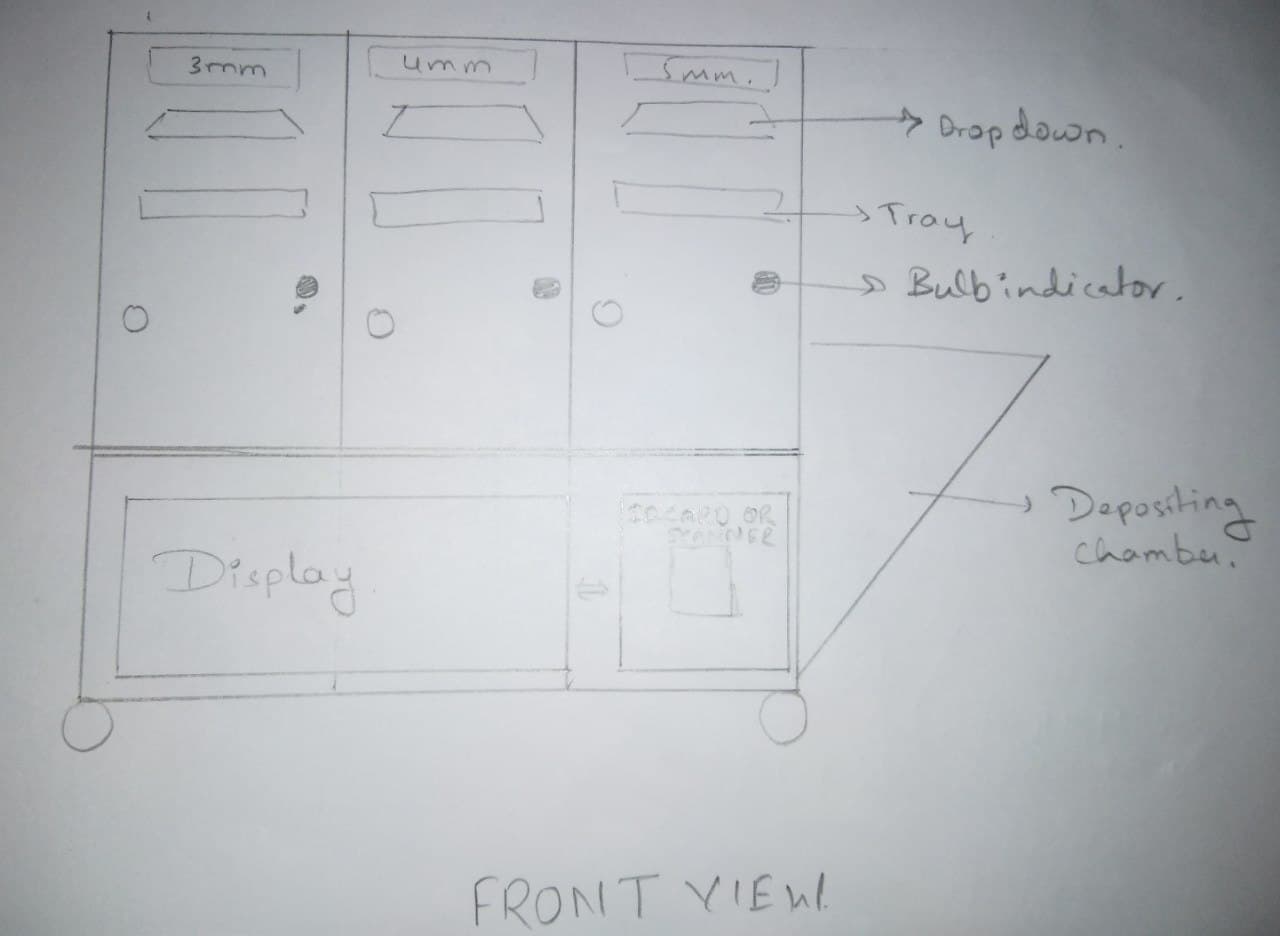 3mm
4mm
5mm.
Dropdown.
Tray
Bulb indicator.
Depositing
chamber.
IDCARD OR
SCANNER
Display
FRONT VIEW.